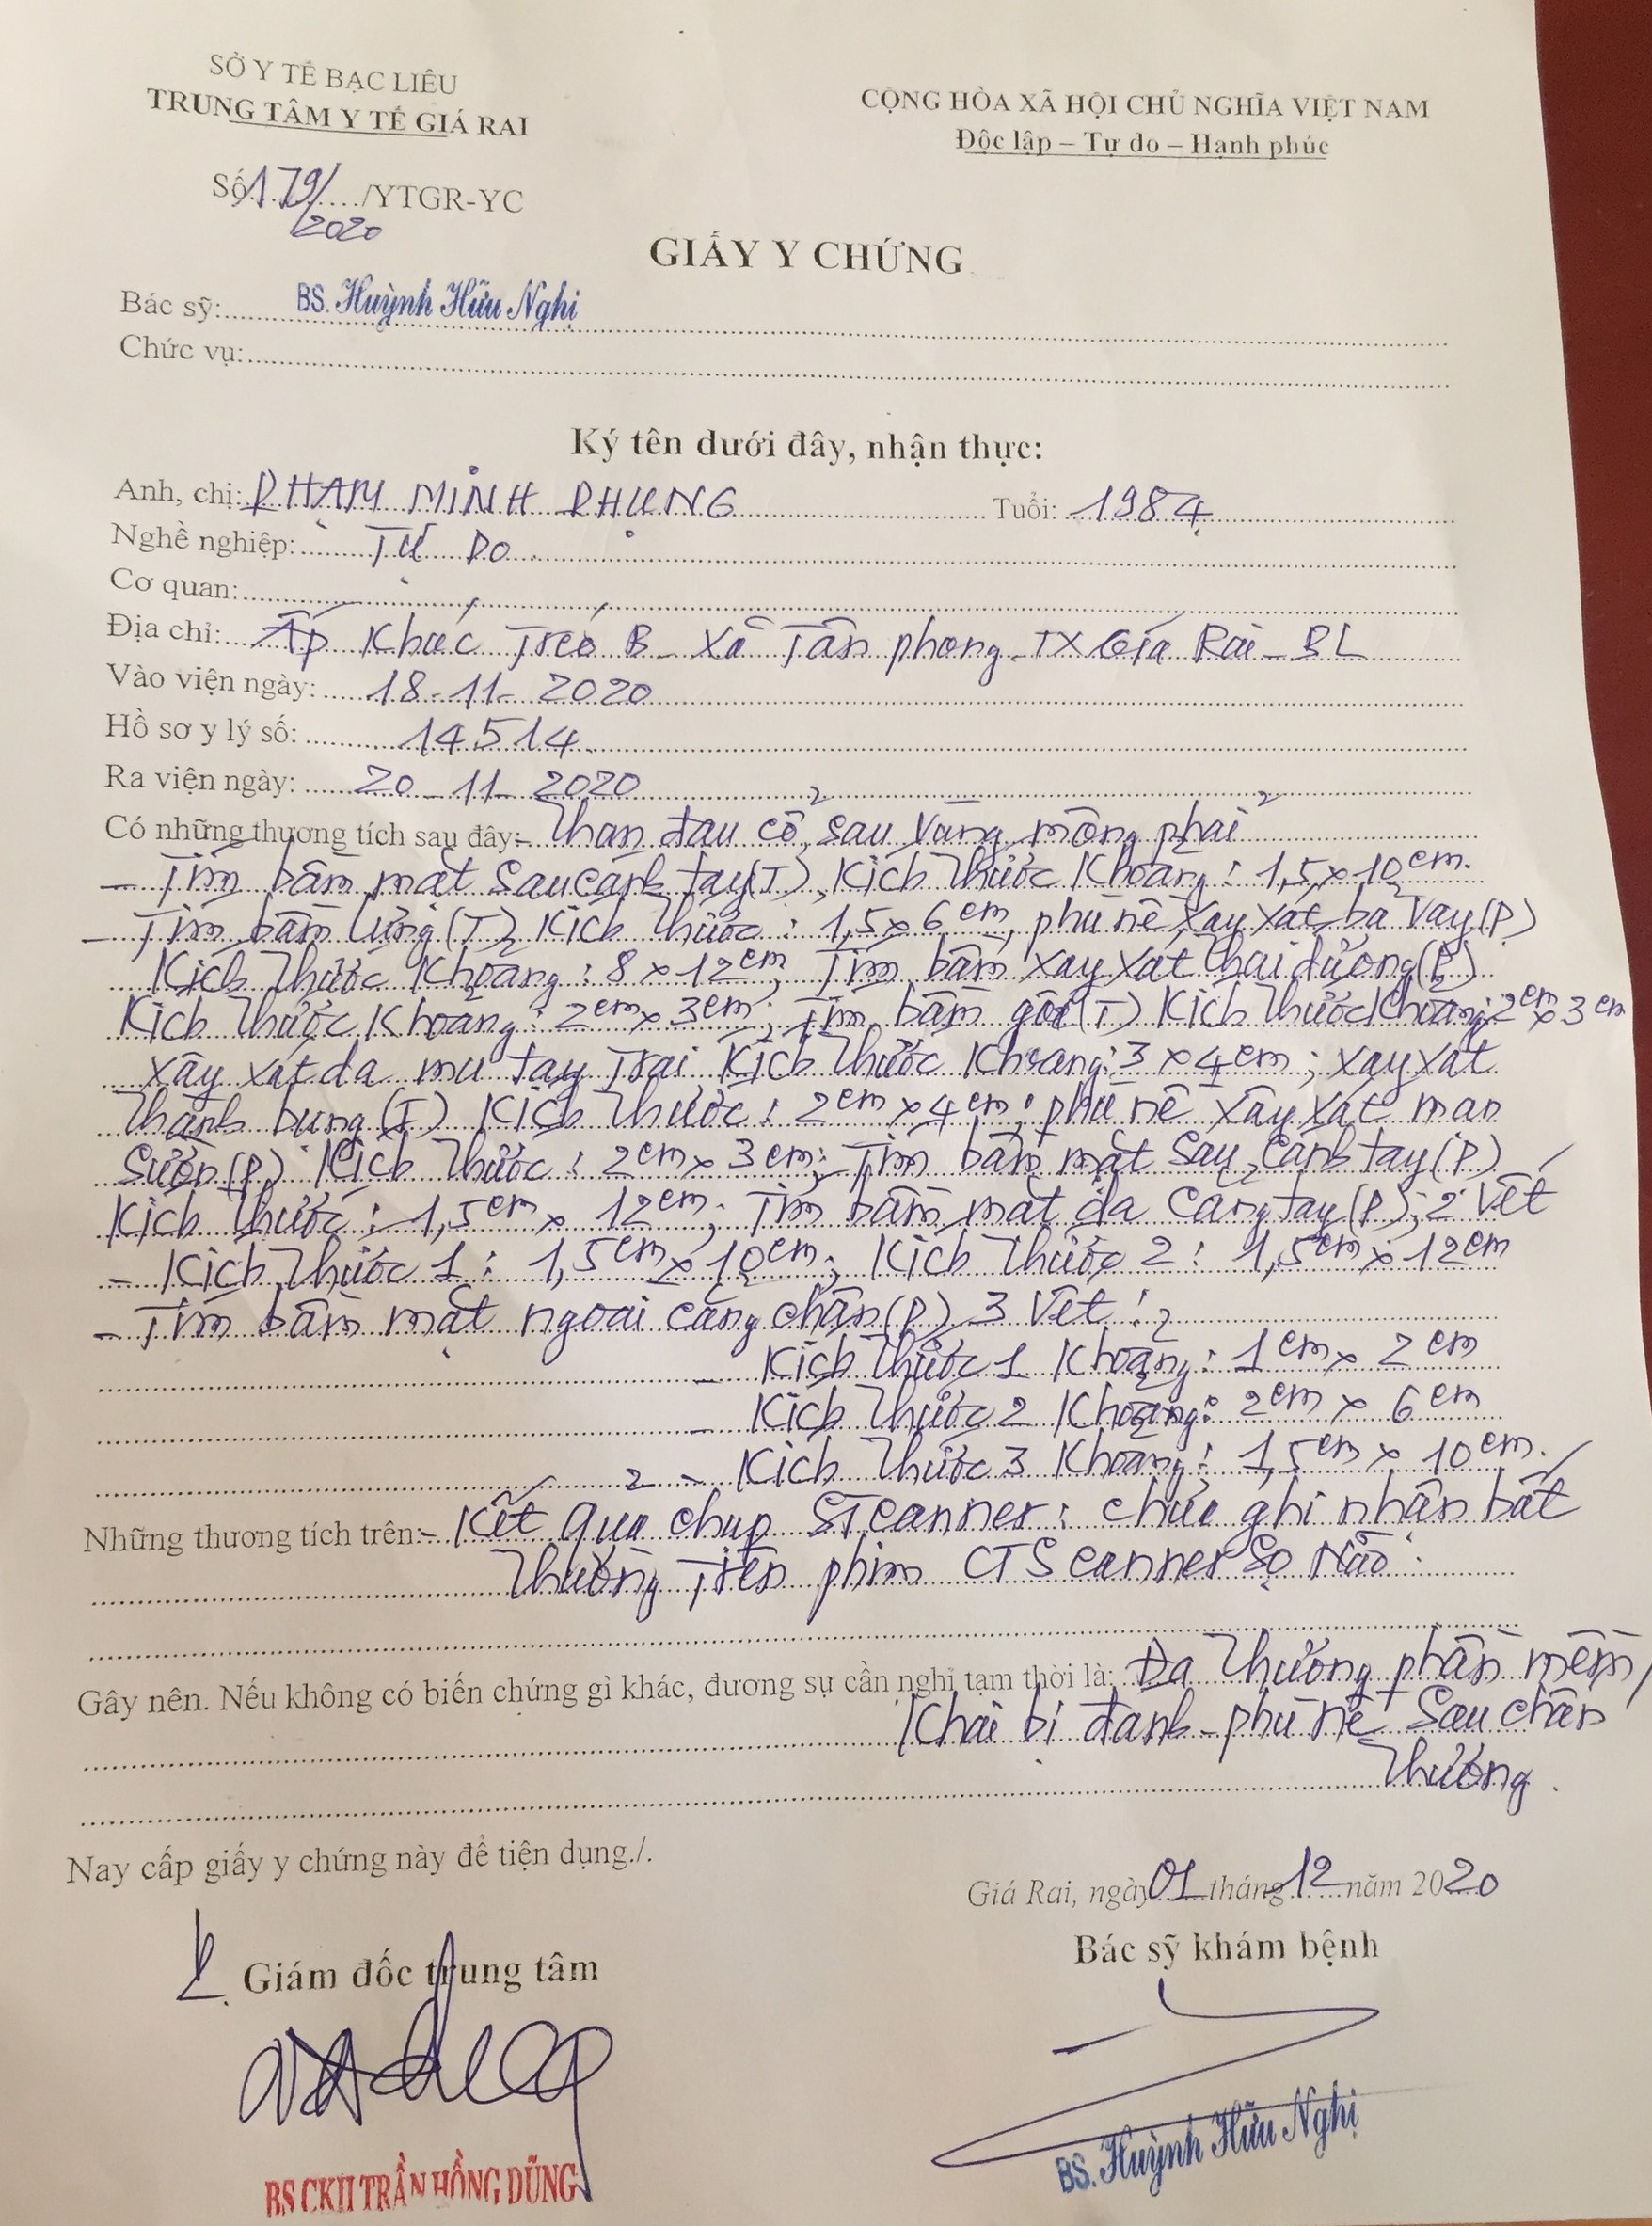 SỞ Y TẾ BẠC LIÊU
TRUNG TÂM Y TẾ GIÁ RAI
CỘNG HÒA XÃ HỘI CHỦ NGHĨA VIỆT NAM
Độc lập – Tự do – Hạnh phúc
Số 179/..../YTGR-YC
2020
GIẤY Y CHỨNG
Bác sỹ: BS. Huỳnh Hữu Nghị
Chức vụ:
Ký tên dưới đây, nhận thực:
Anh, chị: PHẠM MINH PHỤNG Tuổi: 1984
Nghề nghiệp: TỰ DO
Cơ quan:
Địa chỉ: Ấp Khúc Tréo B - Xã Tân phong - TX Giá Rai - BL
Vào viện ngày: 18-11-2020
Hồ sơ y lý số: 14514
Ra viện ngày: 20-11-2020
Có những thương tích sau đây: - Than đau cổ, sau vùng mông phải
- Tím bầm mặt sau cánh tay (T), Kích thước Khoảng: 1,5 x 10cm.
- Tím bầm lưng (T) Kích thước: 1,5 x 6cm, phù nề xây xát bả vay (P)
Kích thước Khoảng: 8 x 12cm; Tím bầm xây xát thái dương (P)
Kích thước Khoảng: 2cm x 3cm; Tím bầm gối (T) Kích thước Khoảng: 2cm x 3cm
xây xát da mu tay Trái Kích thước Khoảng: 3 x 4cm; xây xát
thành bụng (T) Kích thước: 2cm x 4cm; phù nề xây xát mạn
sườn (P) Kích thước: 2cm x 3cm; Tím bầm mặt sau cánh tay (P)
Kích thước: 1,5cm x 12cm; Tím bầm mặt da cẳng tay (P); 2 vết
- Kích thước 1: 1,5cm x 10cm; Kích thước 2: 1,5cm x 12cm
- Tím bầm mặt ngoài cẳng chân (P) 3 vết:
- Kích thước 1 Khoảng: 1cm x 2cm
- Kích thước 2 Khoảng: 2cm x 6cm
- Kích thước 3 Khoảng: 1,5cm x 10cm.
Những thương tích trên: - Kết quả chụp STcanner: chưa ghi nhận bất
thường Trên phim CTScanner Sọ Não.
Gây nên. Nếu không có biến chứng gì khác, đương sự cần nghỉ tạm thời là: Đa thương phần mềm,
Khai bị đánh - phù nề sau chấn
thương.
Nay cấp giấy y chứng này để tiện dụng./.
Giá Rai, ngày 01 tháng 12 năm 2020
Giám đốc trung tâm
Bác sỹ khám bệnh
BS CKII TRẦN HỒNG DŨNG
BS. Huỳnh Hữu Nghị